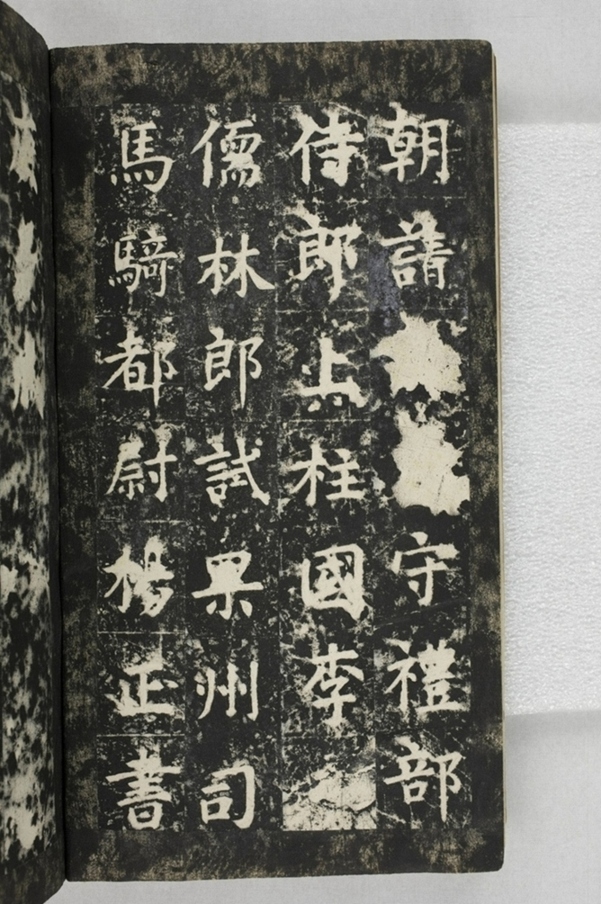 朝請守禮部
侍郎上柱國李
儒林郎試果州司
馬騎都尉楊正書